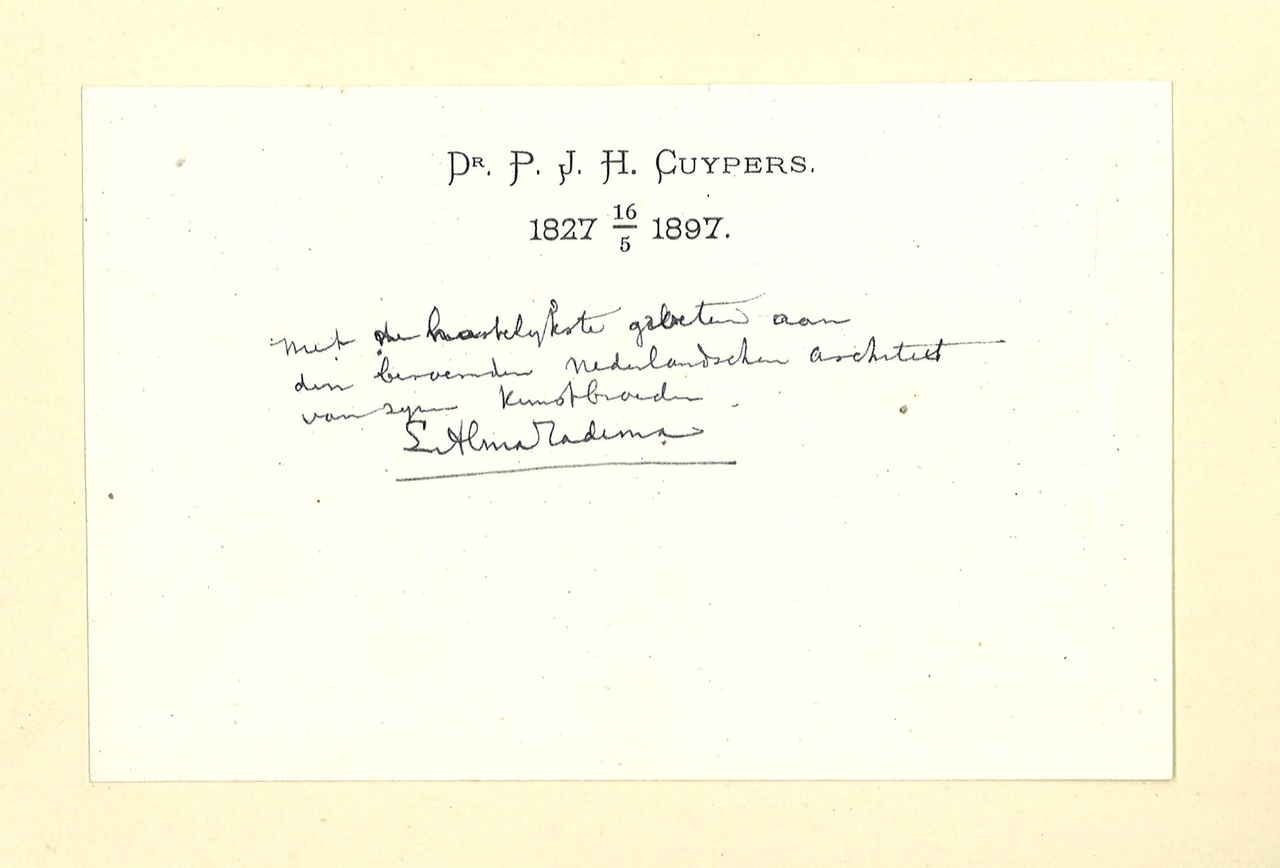 Dr. P. J. H. Cuypers.
1827 16/5 1897.
Met de hartelykste groeten aan
den beroemden Nederlandschen Architect
van zyn Kunstbroeder
L. Alma Tadema